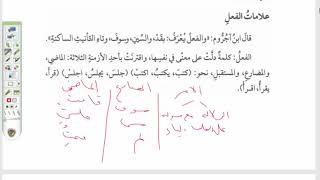 علاماتُ الفعلِ
قالَ ابنُ آجُرُّوم: «والفعلُ يُعْرَفُ: بقَدْ، والسِّينِ، وسوفَ، وتاءِ التأنيثِ الساكنةِ».
الفعلُ: كلمةٌ دلَّتْ على معنًى في نفسِها، واقترنَتْ بأحدِ الأزمنةِ الثلاثةِ: الماضي،
والمضارعِ، والمستقبلِ، نحو: (كتبَ، يكتبُ، اكتبْ) (جلسَ، يجلسُ، اجلسْ) (قرأَ،
يقرأُ، اقرأْ).
الماضي المضارع الأمر
قامت سوف
س
لم